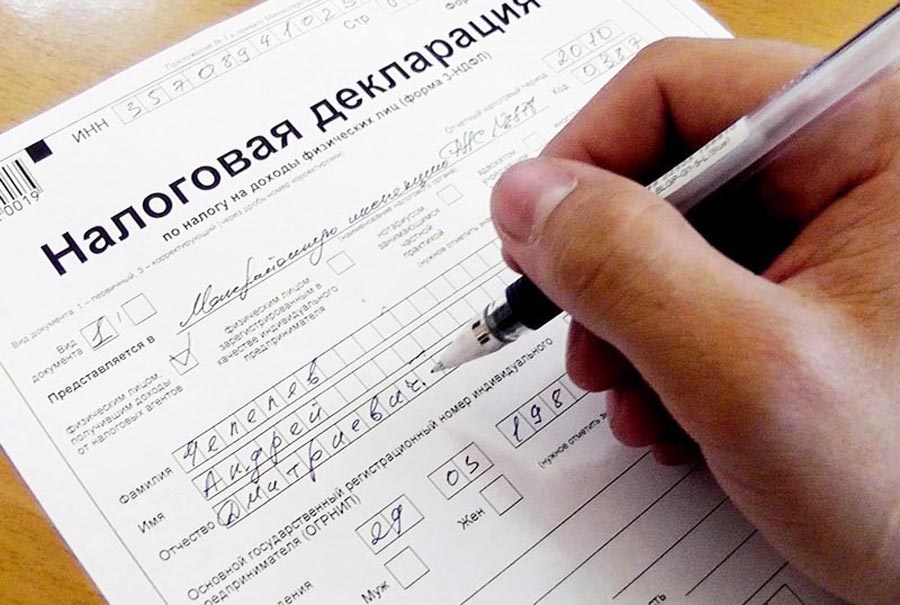 Приложение № 1 к приказу
Стр
ИНН 357089410
Налоговая декларация
по налогу на доходы физических лиц (форма 3-НДФЛ)
Отчетный налоговый период 2010
Код 0387
0019
Вид документа: 1 – первичный, 3 – корректирующий (через дробь номер корректировки)
Вид документа 1 /
Представляется в Межрайонную инспекцию
(наименование налогового органа)
физическим лицом, получившим доходы от налоговых агентов
физическим лицом зарегистрированным в качестве индивидуального предпринимателя
нотариусом занимающимся частной практикой
адвокатом
(нужно отметить
Фамилия Чепепев
Имя Андрей
Отчество Дмитриевич
Основной государственный регистрационный номер индивидуального
предпринимателя (ОГРНИП)
29 03 198
Муж
Жен
(нужное отметить